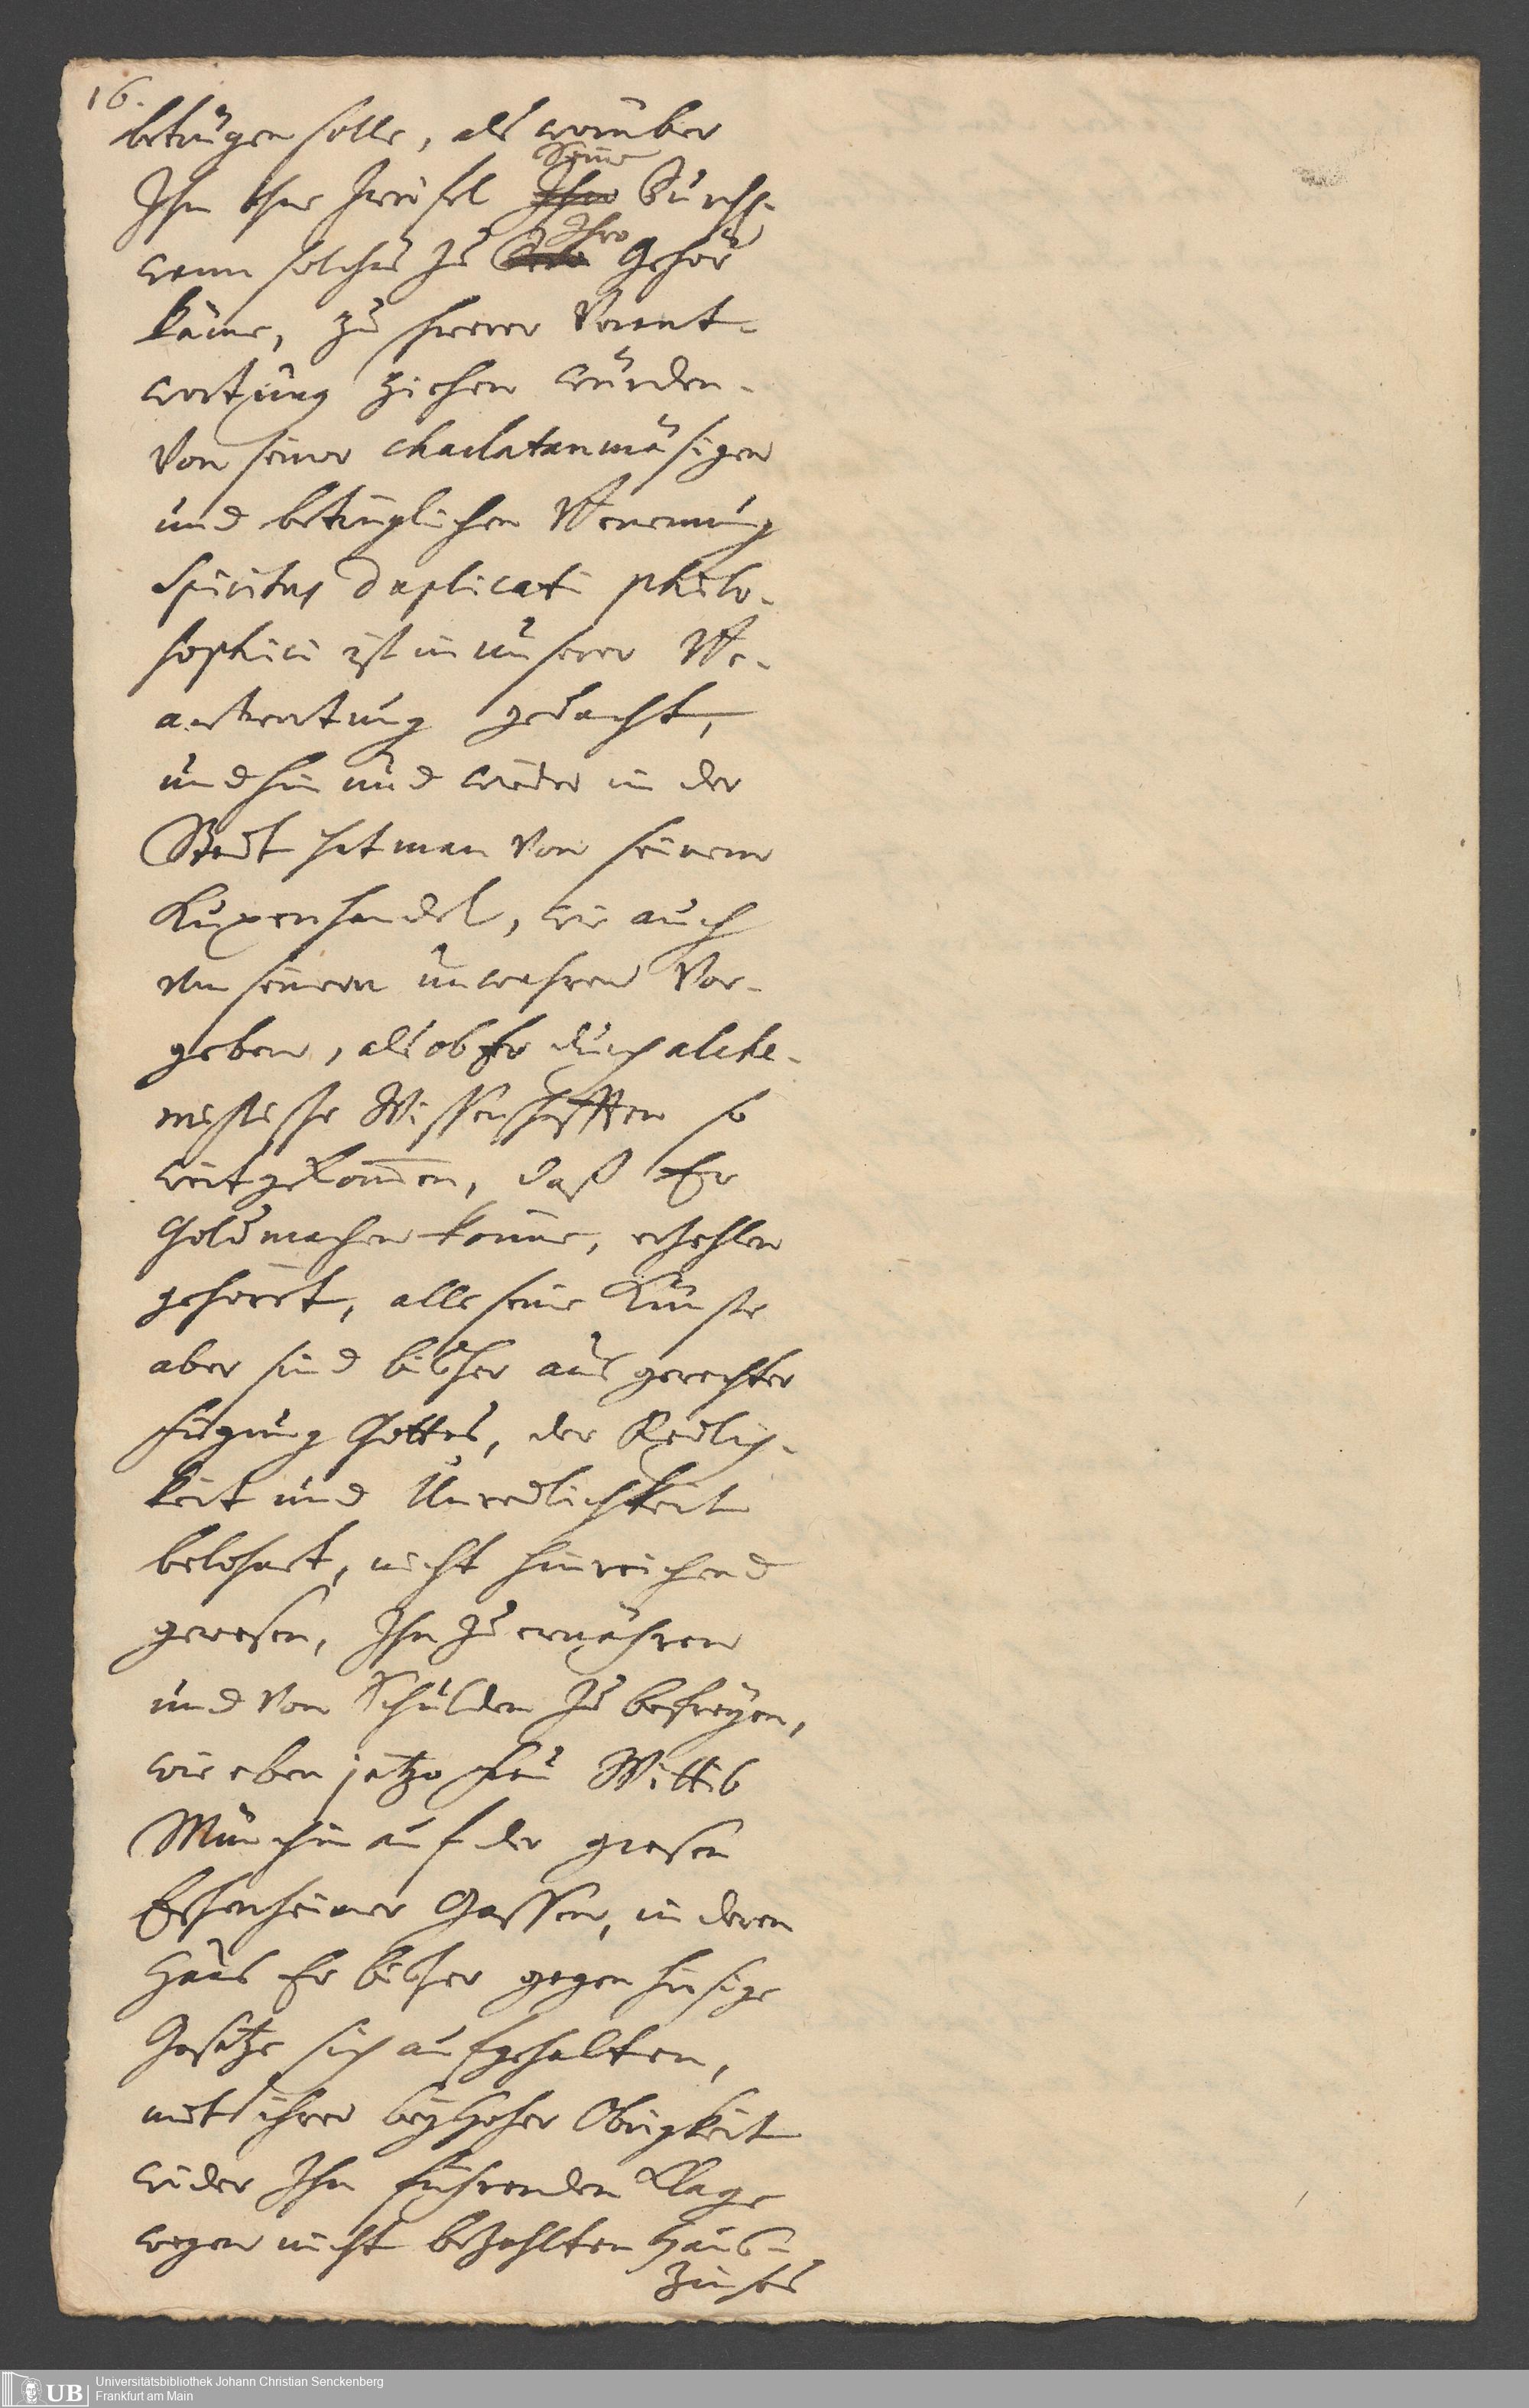 16.
betrügen solle, als worüber
Seine
Ihn ohne Zweifel Ihro Durchl.
Ihro
wenn solches zu Gehör
käme, zu schwerer Verant-
wortung ziehen würden.
Von seiner charlatanmäsigen
und betrüglichen Benennung
Spiritus duplicati philo-
sophici ist in unserer Be-
antwortung gedacht,
und hin und wieder in der
Stadt hat man von seinem
Kuxenhandel, wie auch
von seinem unwahren Vor-
geben, als ob Er durch alche-
mistische Wissenschafften so
weit gekommen, daß Er
Gold machen könne, erzehlen
gehört, alle seine Künste
aber sind bisher aus gerechter
Fügung Gottes, der Redlich-
keit und Unredlichkeit
belohnt, nicht hinreichend
gewesen, Ihn zu ernähren
und von Schulden zu befreyen,
wie eben jetzo Frau Wittib
Münchin auf der grosen
Eschenheimer Gassen, in deren
Haus Er bisher gegen hiesige
Gesetze sich aufgehalten,
mit ihrer bey Hoher Obrigkeit
wider Ihn führenden Klage
wegen nicht bezahlten Haus-
zinses
UB
Universitätsbibliothek Johann Christian Senckenberg
Frankfurt am Main